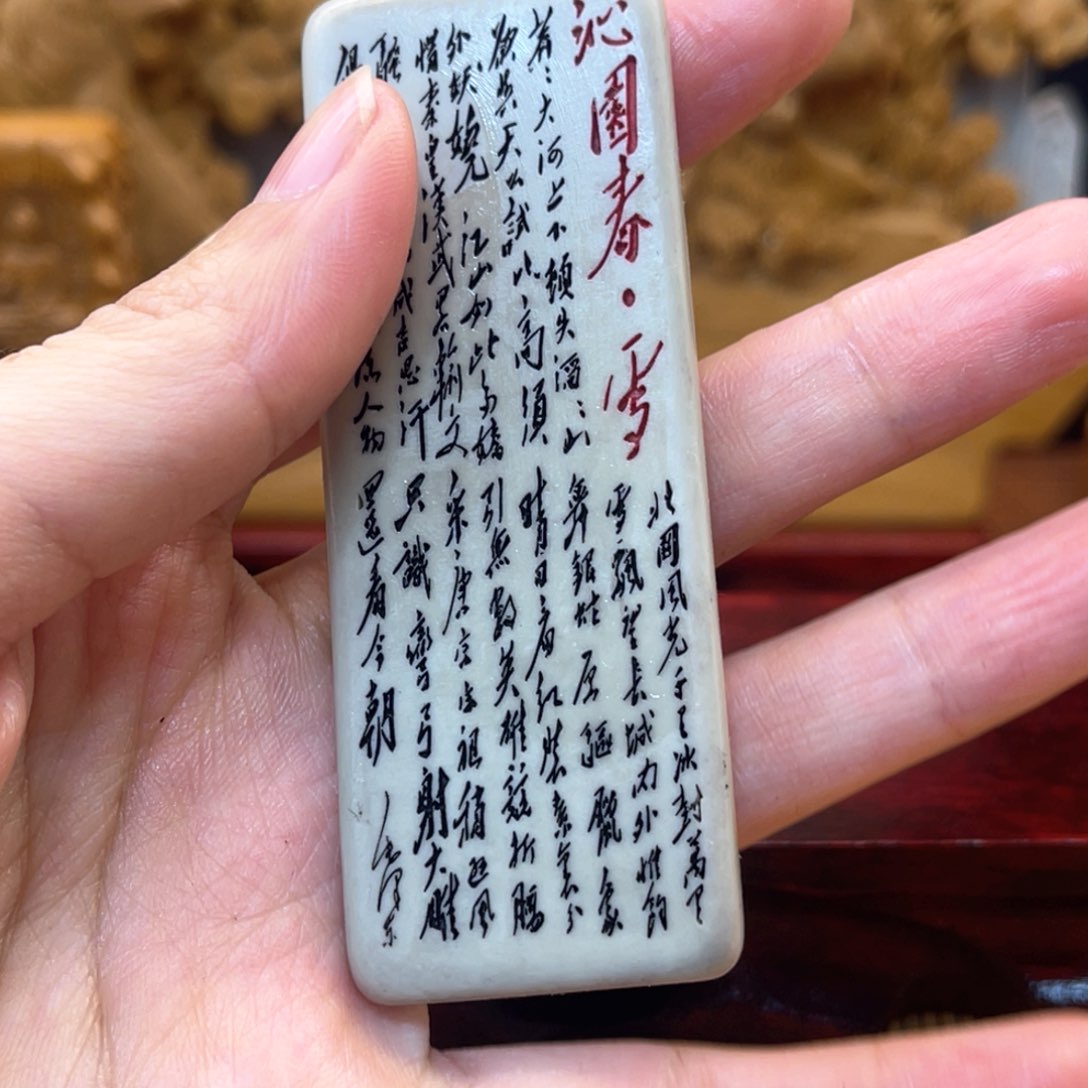 沁園春·雪
北國風光千里冰封萬里
雪飄望長城內外惟餘
莽〻大河上下頓失滔〻山舞銀蛇原驅臘象
欲與天公試比高須晴日看紅裝素裹分
外妖嬈江山如此多嬌引無數英雄競折腰
惜秦皇漢武略輸文采唐宗宋祖稍遜風
騷成吉思汗只識彎弓射大雕
俱流人物還看今朝
毛澤東